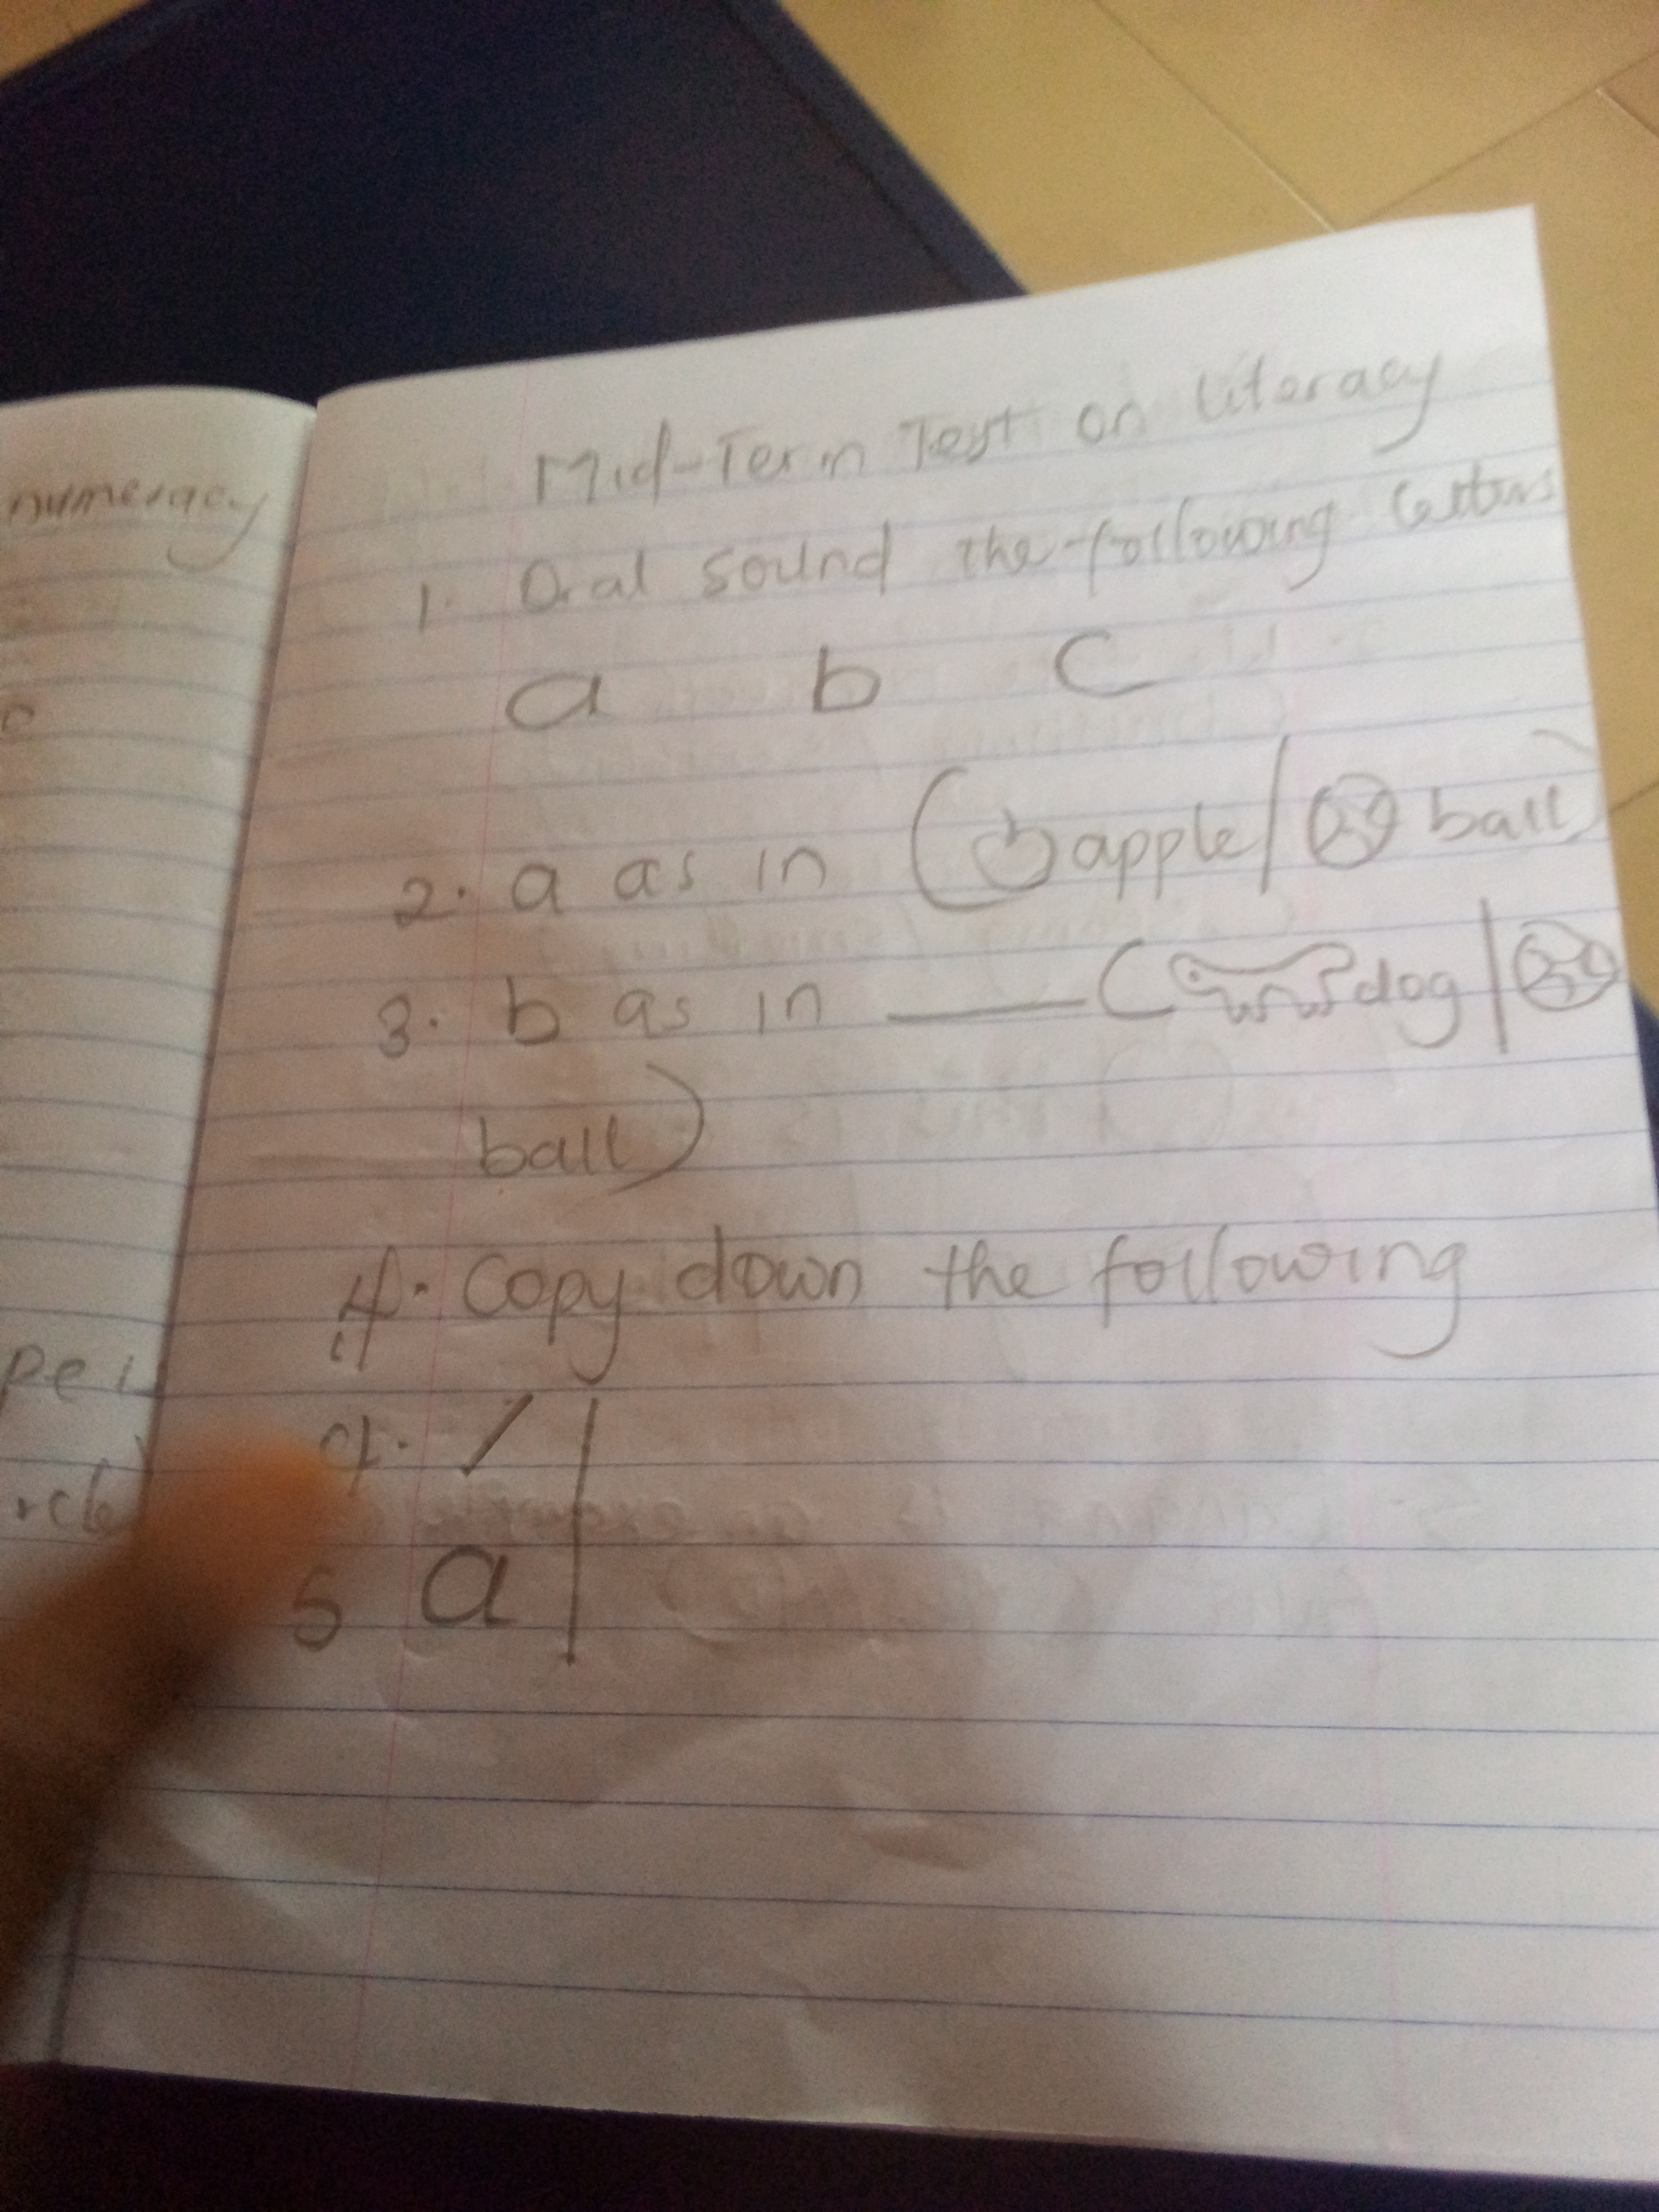 numeracy
Mid-Term Test on literacy
1. Oral sound the following letters
a b c
2. a as in ( apple / ball)
3. b as in ___ ( dog /
ball)
4. Copy down the following
/
5 a